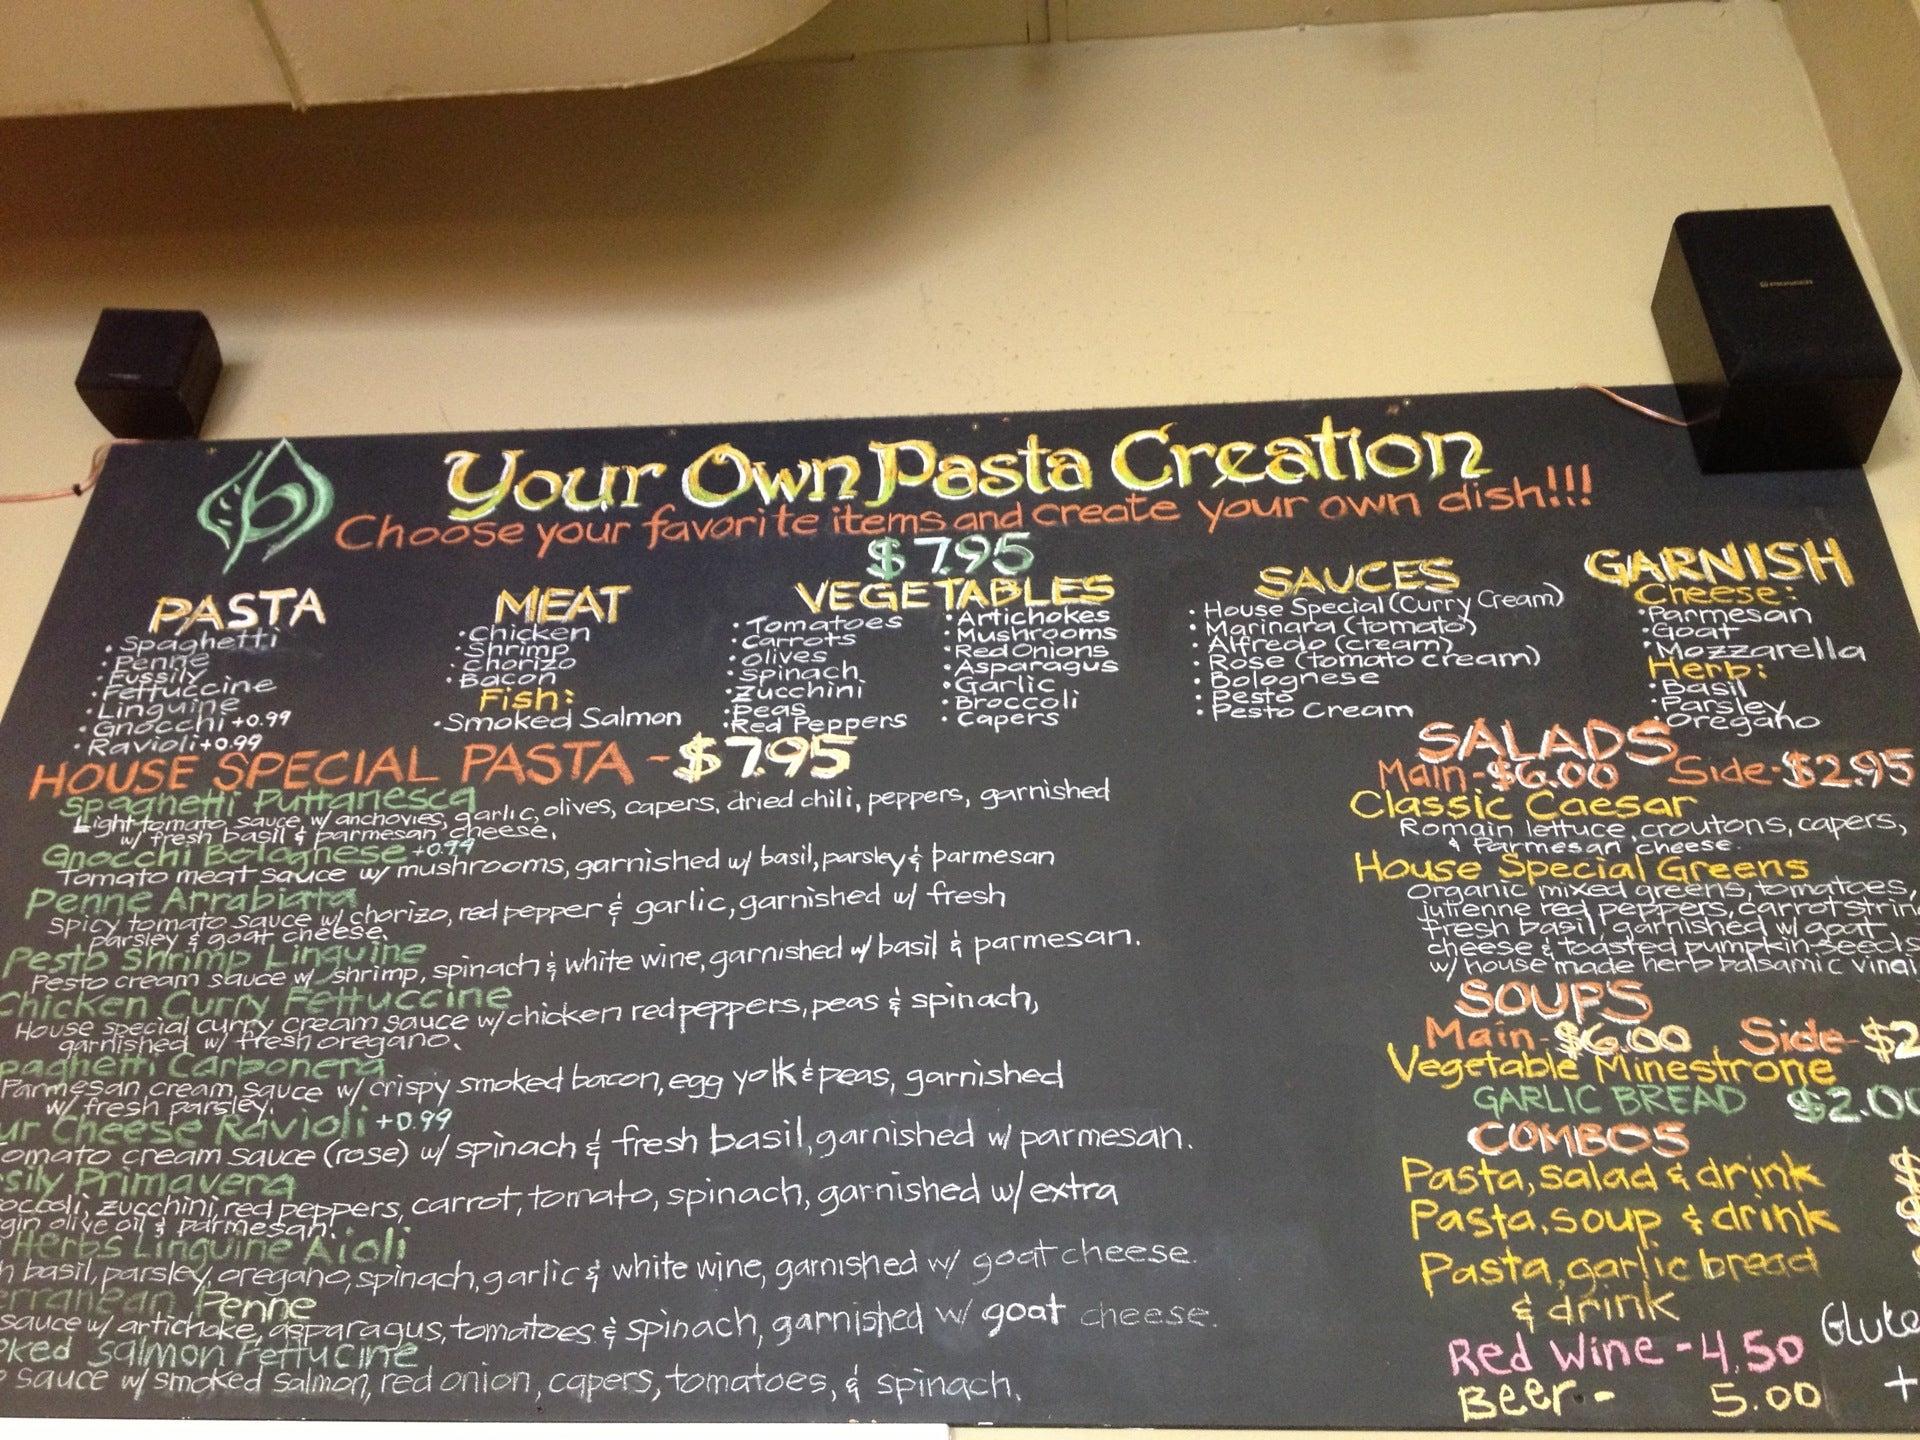 PIONEER
Your Own Pasta Creation
Choose your favorite items and create your own dish!!!
$7.95
PASTA
• Spaghetti
• Penne
• Fussily
• Fettuccine
• Linguine
• Gnocchi +0.99
• Ravioli +0.99
MEAT
• Chicken
• Shrimp
• Chorizo
• Bacon
Fish:
• Smoked Salmon
VEGETABLES
• Tomatoes
• Carrots
• Olives
• Spinach
• Zucchini
• Peas
• Red Peppers
• Artichokes
• Mushrooms
• Red Onions
• Asparagus
• Garlic
• Broccoli
• Capers
SAUCES
• House Special (Curry Cream)
• Marinara (tomato)
• Alfredo (cream)
• Rose (tomato cream)
• Bolognese
• Pesto
• Pesto Cream
GARNISH
Cheese:
• Parmesan
• Goat
• Mozzarella
Herb:
• Basil
• Parsley
• Oregano
HOUSE SPECIAL PASTA - $7.95
Spaghetti Puttanesca
Light tomato sauce w/ anchovies, garlic, olives, capers, dried chili, peppers, garnished
w/ fresh basil & parmesan cheese.
Gnocchi Bolognese +0.99
Tomato meat sauce w/ mushrooms, garnished w/ basil, parsley & parmesan
Penne Arrabiata
Spicy tomato sauce w/ chorizo, red pepper & garlic, garnished w/ fresh
parsley & goat cheese.
Pesto Shrimp Linguine
Pesto cream sauce w/ shrimp, spinach & white wine, garnished w/ basil & parmesan.
Chicken Curry Fettuccine
House special curry cream sauce w/ chicken red peppers, peas & spinach,
garnished w/ fresh oregano.
paghetti Carbonera
Parmesan cream sauce w/ crispy smoked bacon, egg yolk & peas, garnished
w/ fresh parsley.
ur Cheese Ravioli +0.99
omato cream sauce (rose) w/ spinach & fresh basil, garnished w/ parmesan.
sily Primavera
occoli, zucchini, red peppers, carrot, tomato, spinach, garnished w/ extra
gin olive oil & parmesan.
Herbs Linguine Aioli
h basil, parsley, oregano, spinach, garlic & white wine, garnished w/ goat cheese.
erranean Penne
sauce w/ artichoke, asparagus, tomatoes & spinach, garnished w/ goat cheese.
oked Salmon Fettucine
o sauce w/ smoked salmon, red onion, capers, tomatoes, & spinach.
SALADS
Main - $6.00 Side - $2.95
Classic Caesar
Romain lettuce, croutons, capers,
& Parmesan cheese.
House Special Greens
Organic mixed greens, tomatoes,
julienne red peppers, carrot strin
fresh basil, garnished w/ goat
cheese & toasted pumpkin seeds
w/ house made herb balsamic vinai
SOUPS
Main - $6.00 Side - $2
Vegetable Minestrone
GARLIC BREAD $2.00
COMBOS
Pasta, salad & drink $
Pasta, soup & drink $
Pasta, garlic bread
& drink
Red Wine - 4.50
Beer - 5.00
Glute
+